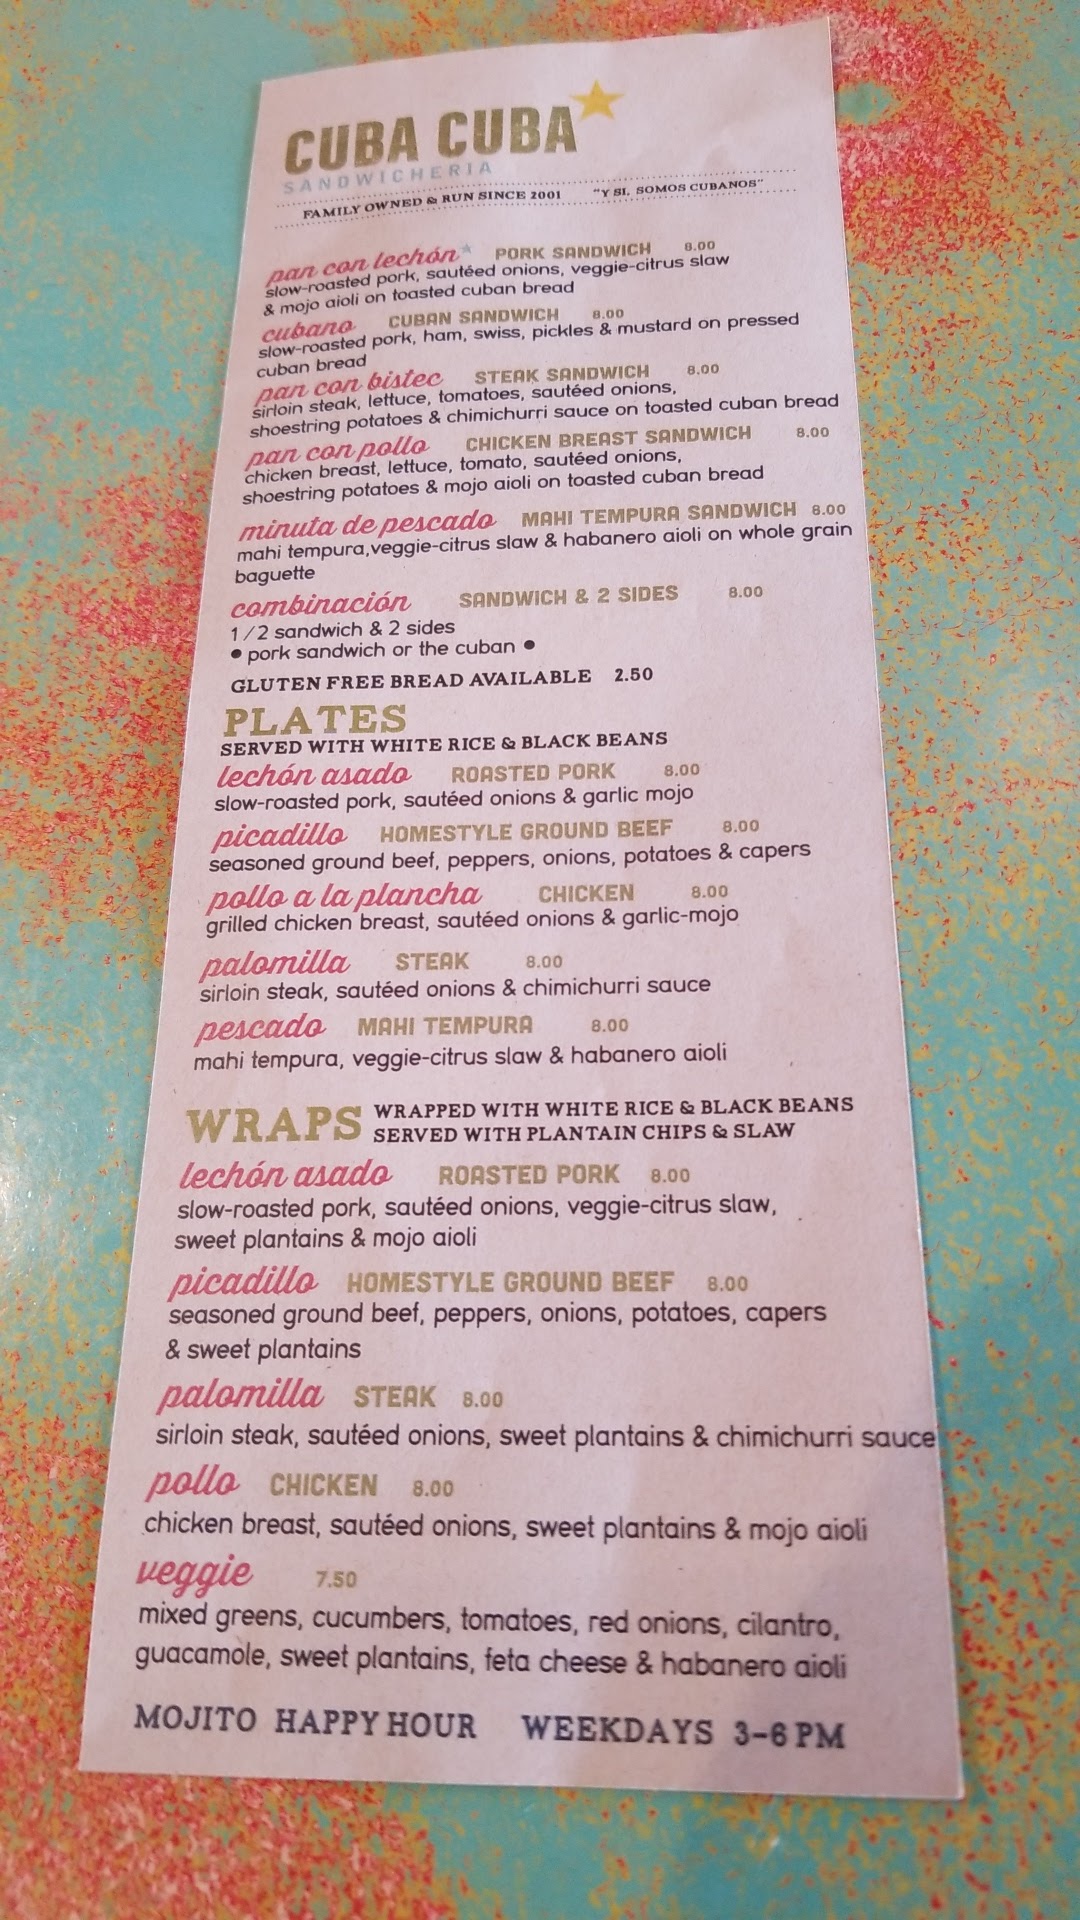 CUBA CUBA
SANDWICHERIA
FAMILY OWNED & RUN SINCE 2001 "Y SI, SOMOS CUBANOS"
pan con lechón* PORK SANDWICH 8.00
slow-roasted pork, sautéed onions, veggie-citrus slaw
& mojo aioli on toasted cuban bread
cubano CUBAN SANDWICH 8.00
slow-roasted pork, ham, swiss, pickles & mustard on pressed
cuban bread
pan con bistec STEAK SANDWICH 8.00
sirloin steak, lettuce, tomatoes, sautéed onions,
shoestring potatoes & chimichurri sauce on toasted cuban bread
pan con pollo CHICKEN BREAST SANDWICH 8.00
chicken breast, lettuce, tomato, sautéed onions,
shoestring potatoes & mojo aioli on toasted cuban bread
minuta de pescado MAHI TEMPURA SANDWICH 8.00
mahi tempura,veggie-citrus slaw & habanero aioli on whole grain
baguette
combinación SANDWICH & 2 SIDES 8.00
1/2 sandwich & 2 sides
• pork sandwich or the cuban •
GLUTEN FREE BREAD AVAILABLE 2.50
PLATES
SERVED WITH WHITE RICE & BLACK BEANS
lechón asado ROASTED PORK 8.00
slow-roasted pork, sautéed onions & garlic mojo
picadillo HOMESTYLE GROUND BEEF 8.00
seasoned ground beef, peppers, onions, potatoes & capers
pollo a la plancha CHICKEN 8.00
grilled chicken breast, sautéed onions & garlic-mojo
palomilla STEAK 8.00
sirloin steak, sautéed onions & chimichurri sauce
pescado MAHI TEMPURA 8.00
mahi tempura, veggie-citrus slaw & habanero aioli
WRAPS WRAPPED WITH WHITE RICE & BLACK BEANS
SERVED WITH PLANTAIN CHIPS & SLAW
lechón asado ROASTED PORK 8.00
slow-roasted pork, sautéed onions, veggie-citrus slaw,
sweet plantains & mojo aioli
picadillo HOMESTYLE GROUND BEEF 8.00
seasoned ground beef, peppers, onions, potatoes, capers
& sweet plantains
palomilla STEAK 8.00
sirloin steak, sautéed onions, sweet plantains & chimichurri sauce
pollo CHICKEN 8.00
chicken breast, sautéed onions, sweet plantains & mojo aioli
veggie 7.50
mixed greens, cucumbers, tomatoes, red onions, cilantro,
guacamole, sweet plantains, feta cheese & habanero aioli
MOJITO HAPPY HOUR WEEKDAYS 3-6 PM